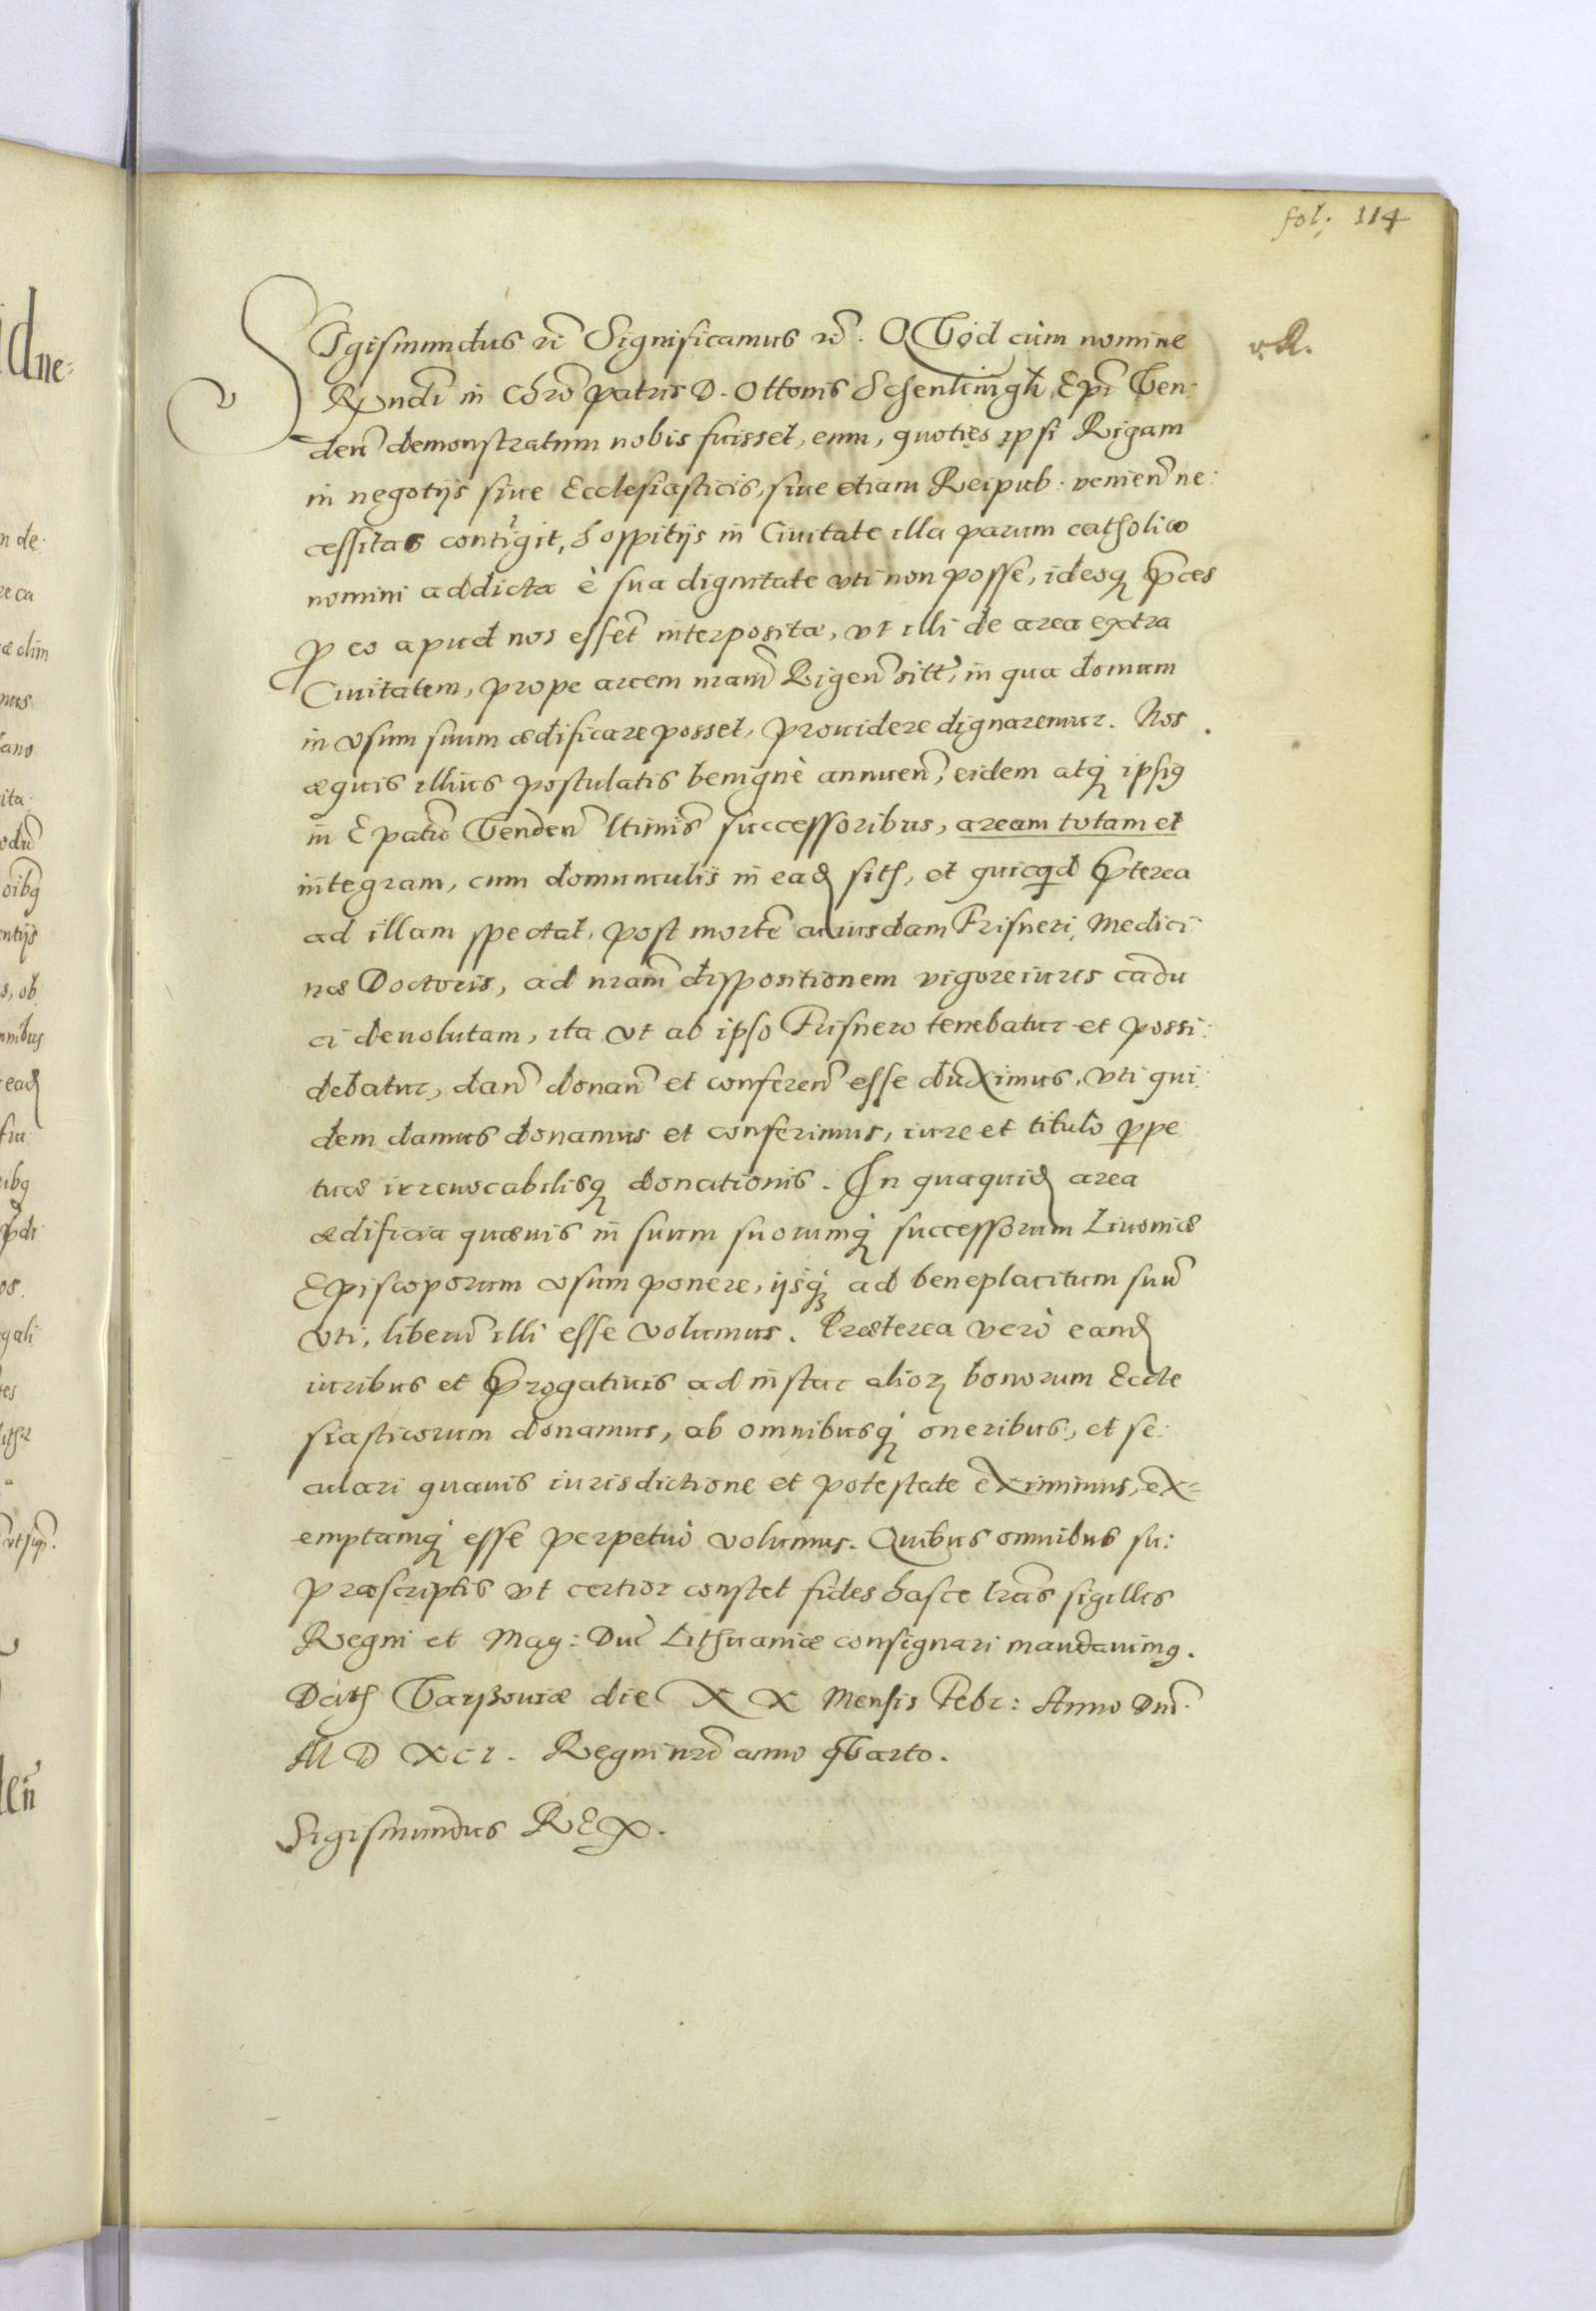 fol: 114
SIgismundus rc̄ Significamus rc̄. QVòd cùm nomine
R.
Rṇdi in Chrō patris D. Ottonis Schenkingh Epī Ven:
deñ demonstratum nobis fuisset, eum, quoties ipsi Rigam
in negotijs siue Ecclesiasticis, siue etiam Reipub: venieñ ne:
cessitas contigit, hospitijs in Ciuitate illa parum catholico
nomini addicta è sua dignitate vti non posse, ideoq; p̄ces
ꝓ eo apud nos esseñt interpositæ, vt illi de area extra
Ciuitatem, prope arcem nram̄ Rigeñ sitā, in qua domum
in vsum suum ædificare posset, prouidere dignaremur. Nos
æquis illius postulatis benignè annueñ, eidem atq; ipsi9
in Epatū Vendeñ ltimis̄ successoribus, aream totam et
integram, cum domunculis in ead sitis, et quicqd p̄terea
ad illam spectat, post mortē cuiusdam Frisneri, Medici
næ Doctoris, ad nram̄ dispositionem vigore iuris cadu
ci deuolutam, ita vt ab ipso Frisnero tenebatur et possi:
debatur, dañ donañ et confereñ esse duximus, vti qui
dem damus donamus et conferimus, iure et titulo ꝑpe
tuæ irreuocabilisq; donationis. In quaquid area
ædificia quæuis in suum suorumq; successorum Liuoniæ
Episcoporum vsum ponere, ijsq; ad beneplacitum suū
vti, liberū illi esse volumus. Præterea verò eand
iuribus et p̄rogatiuis ad instar alioꝝ bonorum Eccle
siasticorum donamus, ab omnibusq; oneribus, et se:
culari quauis iurisdictione et potestate eximimus, ex=
emptamq; esse perpetuò volumus. Quibus omnibus su:
præscriptis vt certior constet fides hasce lrās sigillis
Regni et Mag: Duc̄ Lithuaniæ consignari mandauim9.
Datū Varssouiæ die XX Mensis Febr: Anno Dnī
M D XCI. Regni nrī anno qVarto.
Sigismundus REX.